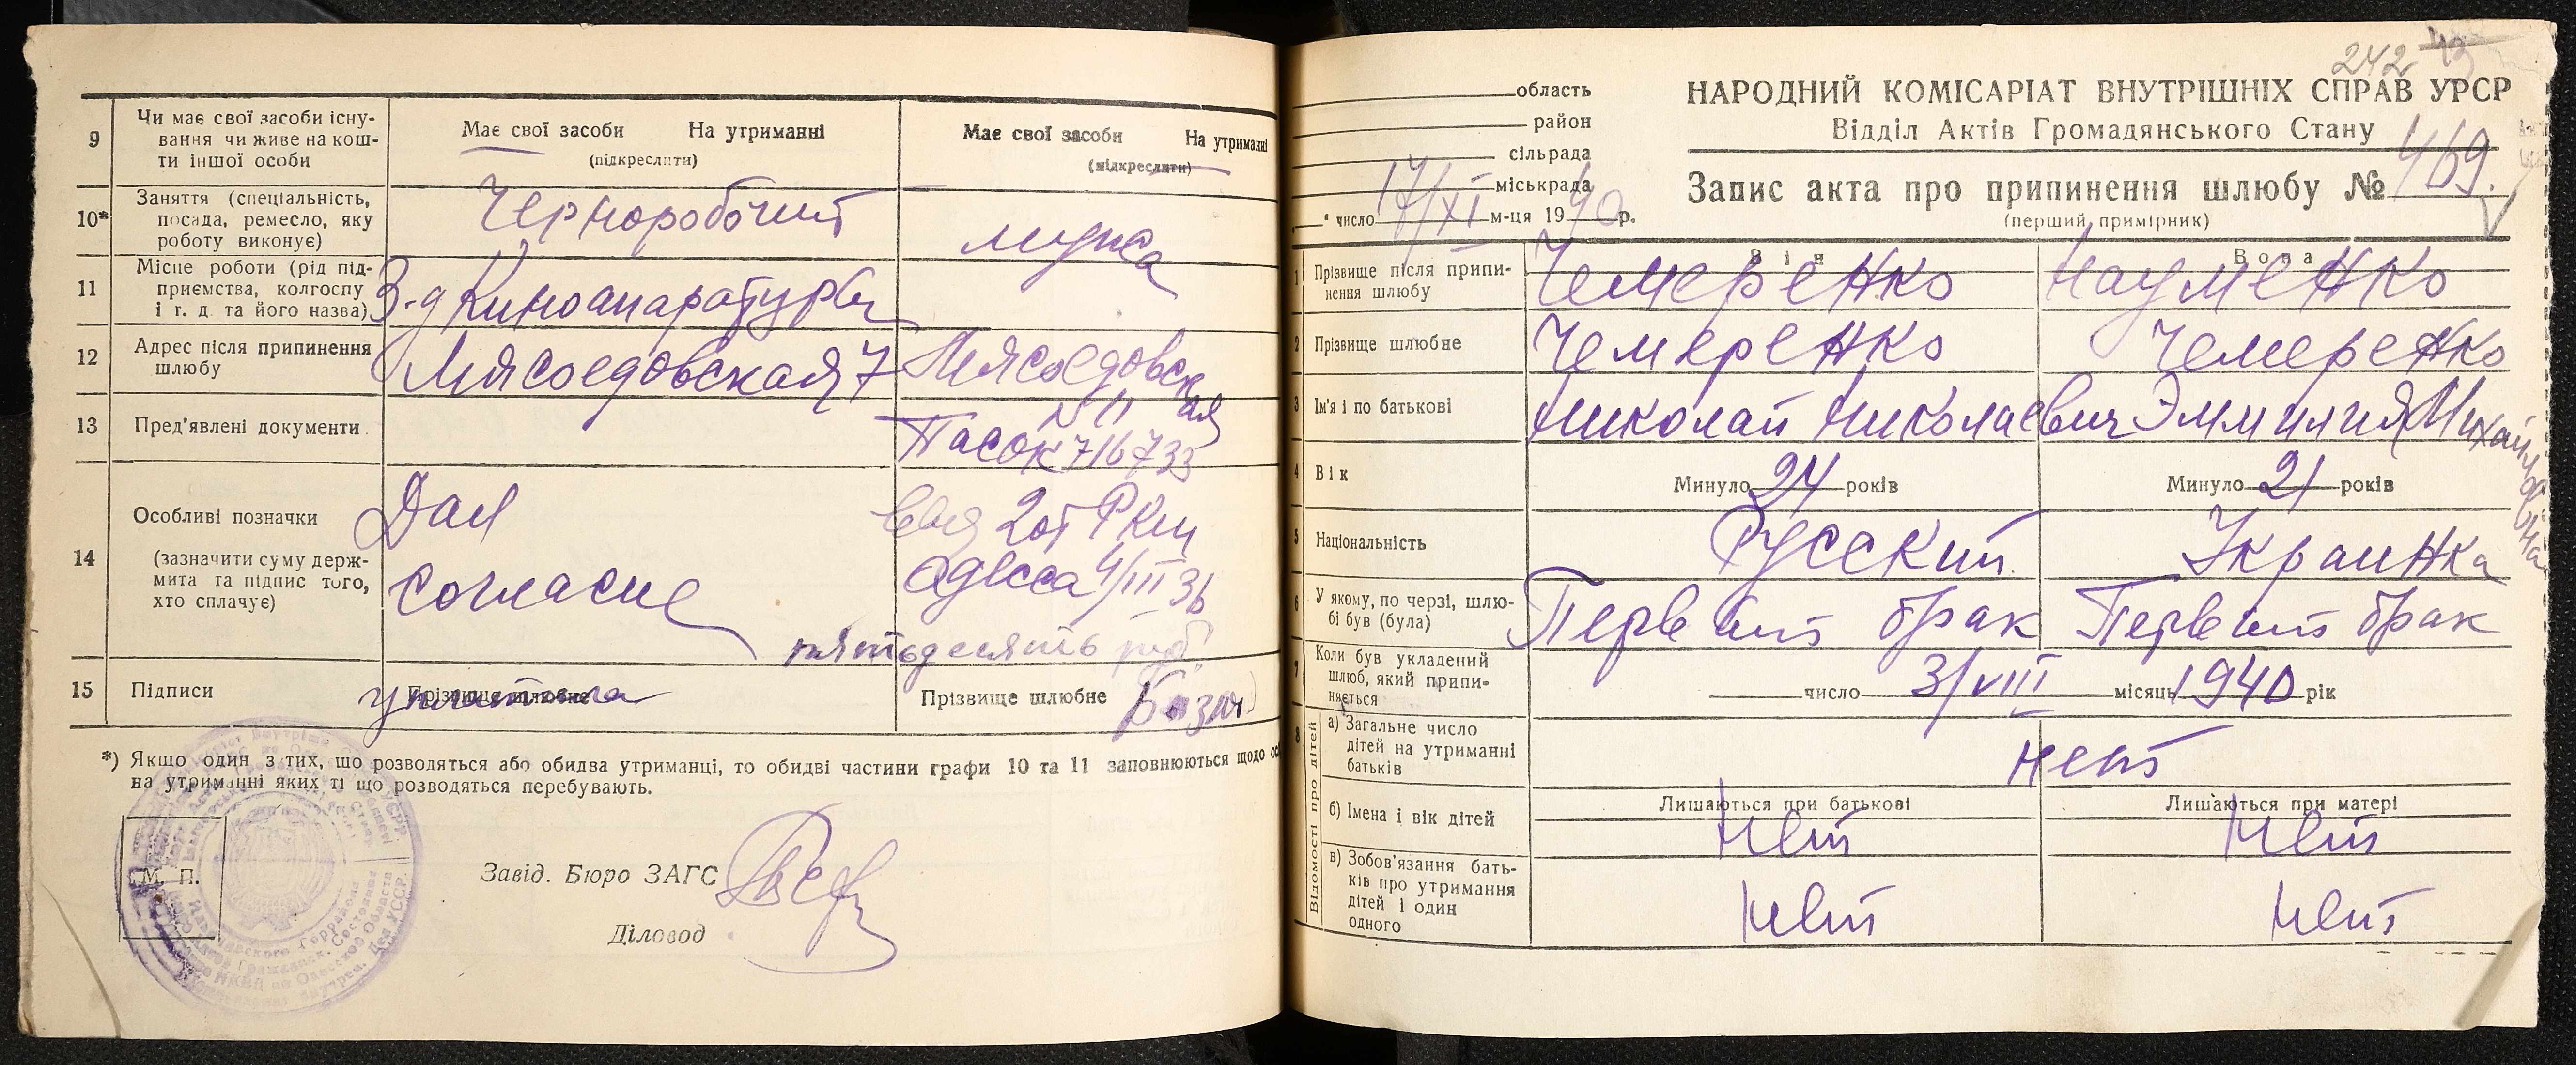 9
Чи має свої засоби існу-
вання чи живе на кош-
ти іншої особи
Має свої засоби На утриманні
(підкреслити)
Має свої засоби На утриманні
(підкреслити)
10*
Заняття (спеціальність,
посада, ремесло, яку
роботу виконує)
Черноробочий
мужа
11
Місце роботи (рід під-
приємства, колгоспу
і т. д. та його назва)
З-д Киноапаратуры
12
Адрес після припинення
шлюбу
Мясоедовская 7
Мясоедовская
N 11
13
Пред'явлені документи
Пасок 716733
14
Особливі позначки
(зазначити суму держ-
мита та підпис того,
хто сплачує)
Дал
согласие
2 от РКМ
Одесса 4/III 36
пятьдесять руб.
15
Підписи
Прізвище шлюбне
уплатила
Прізвище шлюбне
*) Якщо один з тих, що розводяться або обидва утриманці, то обидві частини графи 10 та 11 заповнюються щодо
на утриманні яких ті що розводяться перебувають.
М. П.
Завід. Бюро ЗАГС
Діловод
242
область
район
сільрада
міськрада
" число 17/XI м-ця 1940 р.
НАРОДНИЙ КОМІСАРІАТ ВНУТРІШНІХ СПРАВ УРСР
Відділ Актів Громадянського Стану
Запис акта про припинення шлюбу № 469.
(перший примірник)
Він
Вона
1
Прізвище після припи-
нення шлюбу
Чемеренко
Науменко
2
Прізвище шлюбне
Чемеренко
Чемеренко
3
Ім'я і по батькові
Николай Николаевич
Эммилия Михайловна
4
Вік
Минуло 24 років
Минуло 21 років
5
Національність
Русский
Украинка
6
У якому, по черзі, шлю-
бі був (була)
Первый брак
Первый брак
7
Коли був укладений
шлюб, який припи-
няється
число 3/VIII місяць 1940 рік
8
Відомості про дітей
а) Загальне число
дітей на утриманні
батьків
нет
б) Імена і вік дітей
Лишаються при батькові
нет
Лишаються при матері
нет
в) Зобов'язання бать-
ків про утримання
дітей і один
одного
нет
нет